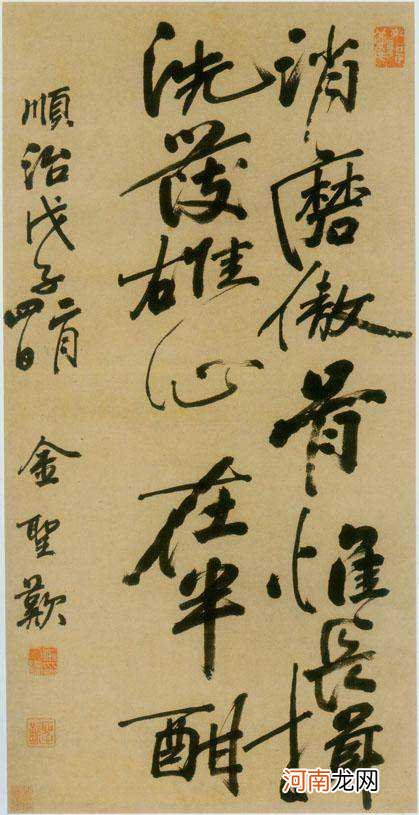 消磨傲骨惟長揖
洗發雄心在半酣
順治戊子二月四日 金聖歎
河南龙网